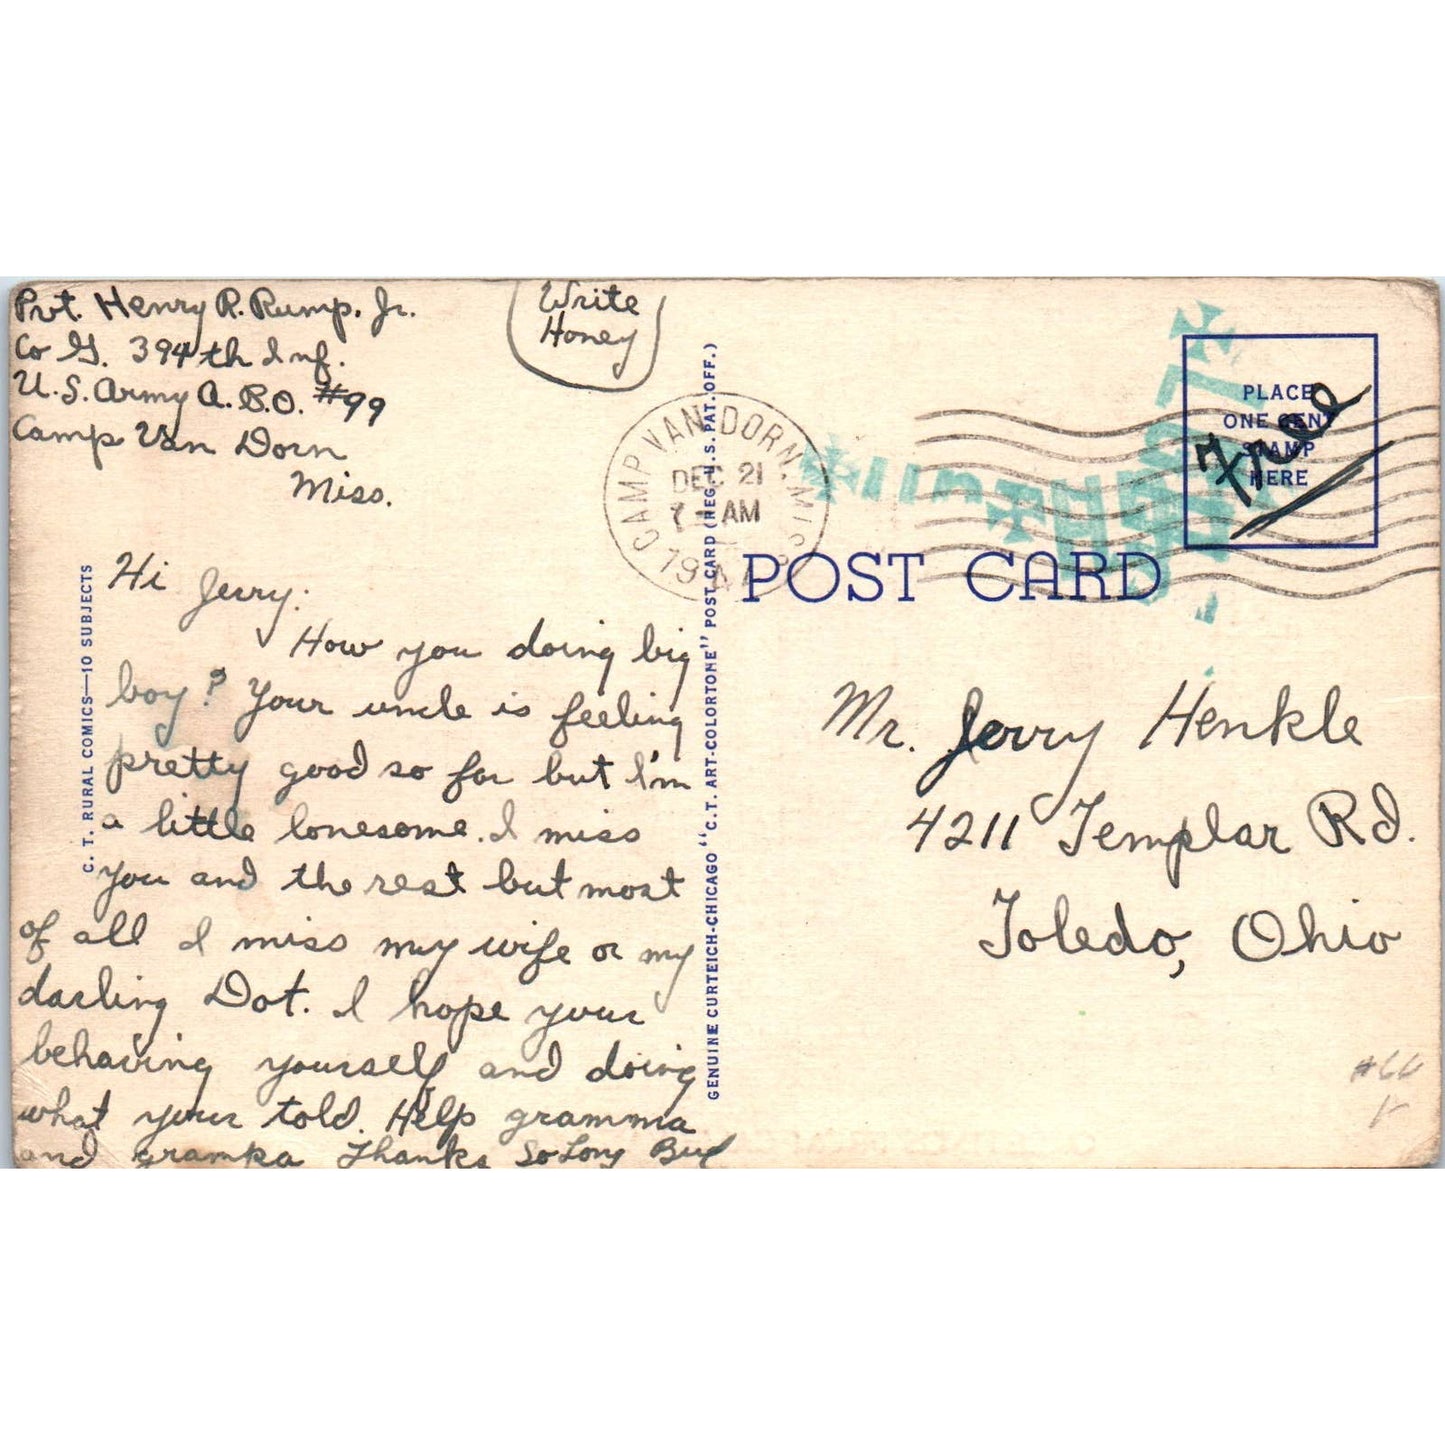 Pvt. Henry R. Rump, Jr.
Co G. 394th Inf.
U.S. Army A.P.O. #99
Camp Van Dorn
Miss.
Write
Honey
Hi Jerry:
How you doing big
boy? Your uncle is feeling
pretty good so far but I'm
a little lonesome. I miss
you and the rest but most
of all I miss my wife or my
darling Dot. I hope your
behaving yourself and doing
what your told. Help gramma
and grampa Thanks So Long Bud
C. T. RURAL COMICS—10 SUBJECTS
GENUINE CURTEICH-CHICAGO "C.T. ART-COLORTONE" POST CARD (REG. U.S. PAT. OFF.)
CAMP VAN DORN, MISS
DEC 21
7 - AM
194
POST CARD
PLACE
ONE CENT
STAMP
HERE
Free
Mr. Jerry Henkle
4211 Templar Rd.
Toledo, Ohio
#66